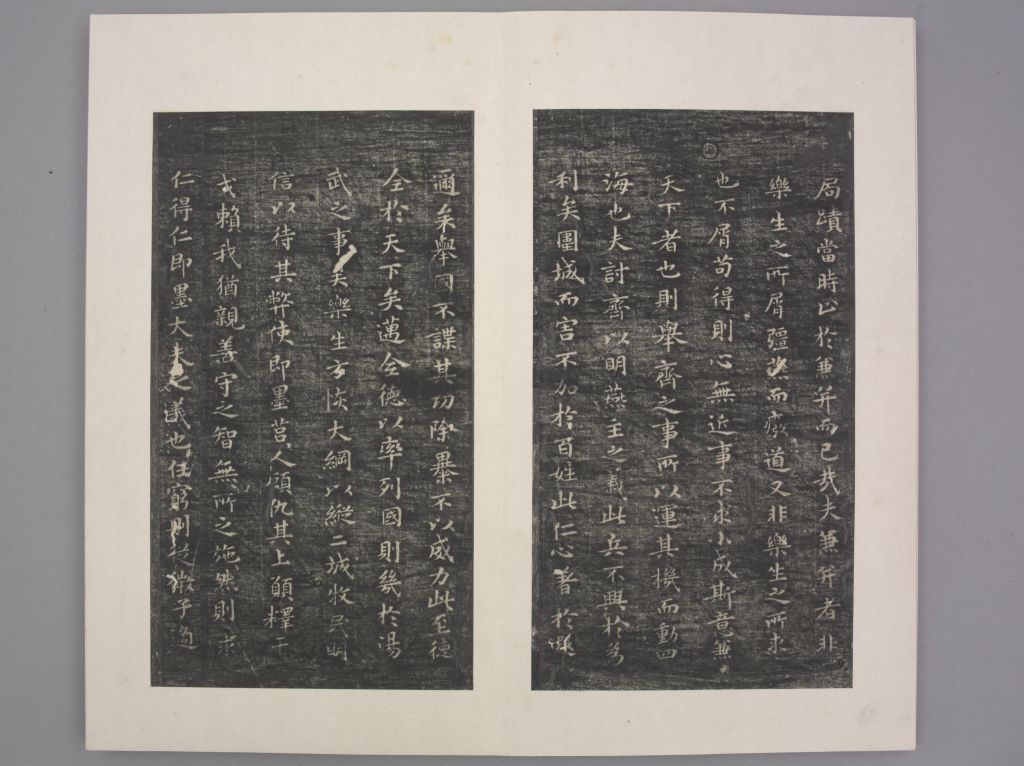 局蹟當時止於兼并而已哉夫兼并者非
樂生之所屑彊燕而癈道又非樂生之所求
也不屑苟得則心無近事不求小成斯意兼
天下者也則舉齊之事所以運其機而動四
海也夫討齊以明燕主之義此兵不興於為
利矣圍城而害不加於百姓此仁心著於遐
邇矣舉國不謀其功除暴不以威力此至德
全於天下矣邁全德以率列國則幾於湯
武之事矣樂生方恢大綱以縱二城牧民明
信以待其弊使即墨莒人顧仇其上願釋干
戈賴我猶親善守之智無所之施然則求
仁得仁即墨大夫之義也任窮則從微子適